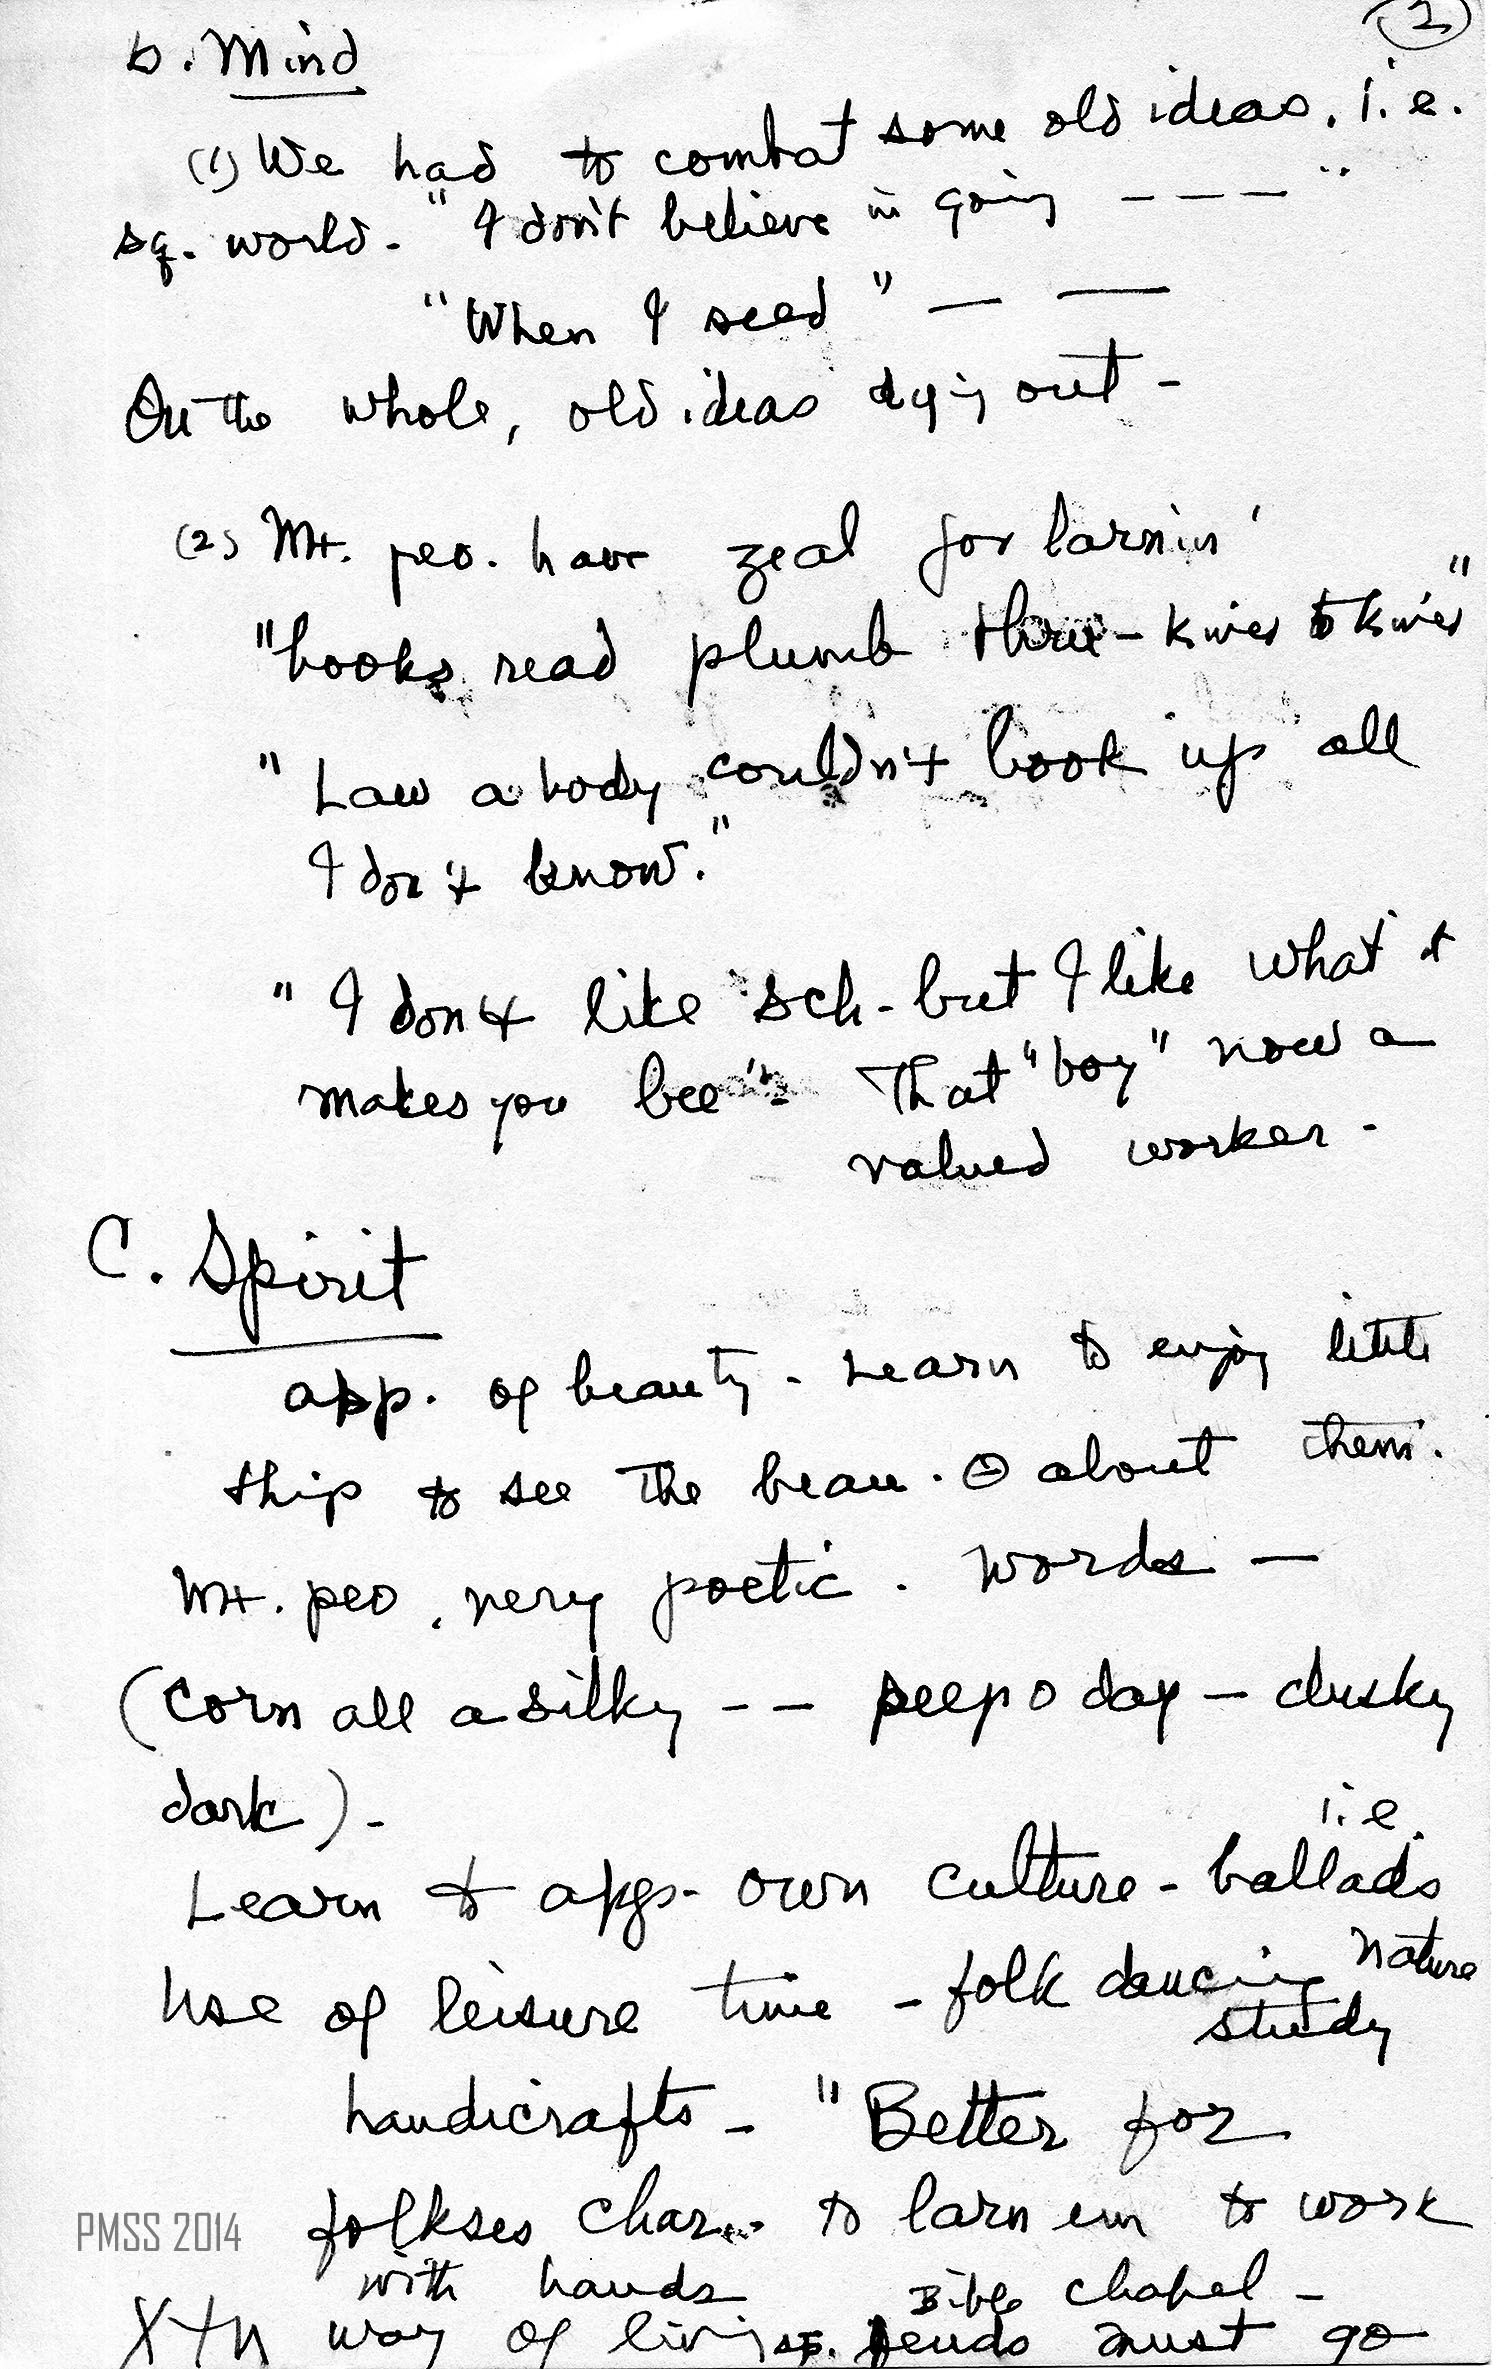 (2)
b. Mind
(1) We had to combat some old ideas. i.e.
sq. world. "I don't believe in going - - - - "
"When I seed" — —
On the whole, old ideas dying out -
(2) Mt. peo. have zeal for larnin'
"books read plumb thru - kiver to kiver"
"Law a body couldn't book up all
I don't know."
"I don't like sch - but I like what it
makes you bee" - That "boy" now a
valued worker -
C. Spirit
app. of beauty - Learn to enjoy little
things to see the beau. about them.
Mt. peo. very poetic. Words —
(Corn all a silky - - peep o day - dusky
dark) -
i.e.
Learn to app. own culture - ballads
Use of leisure time - folk dancing nature
study
handicrafts - "Better for
folkses char.. to larn em to work
with hands Bible chapel -
Xtn way of living. feuds must go
PMSS 2014